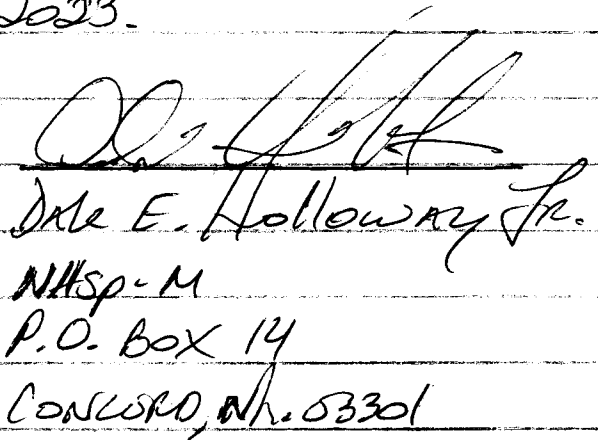 2023.
Dale E. Holloway Jr.
NHSP-M
P.O. BOX 14
CONCORD, Nh. 03301